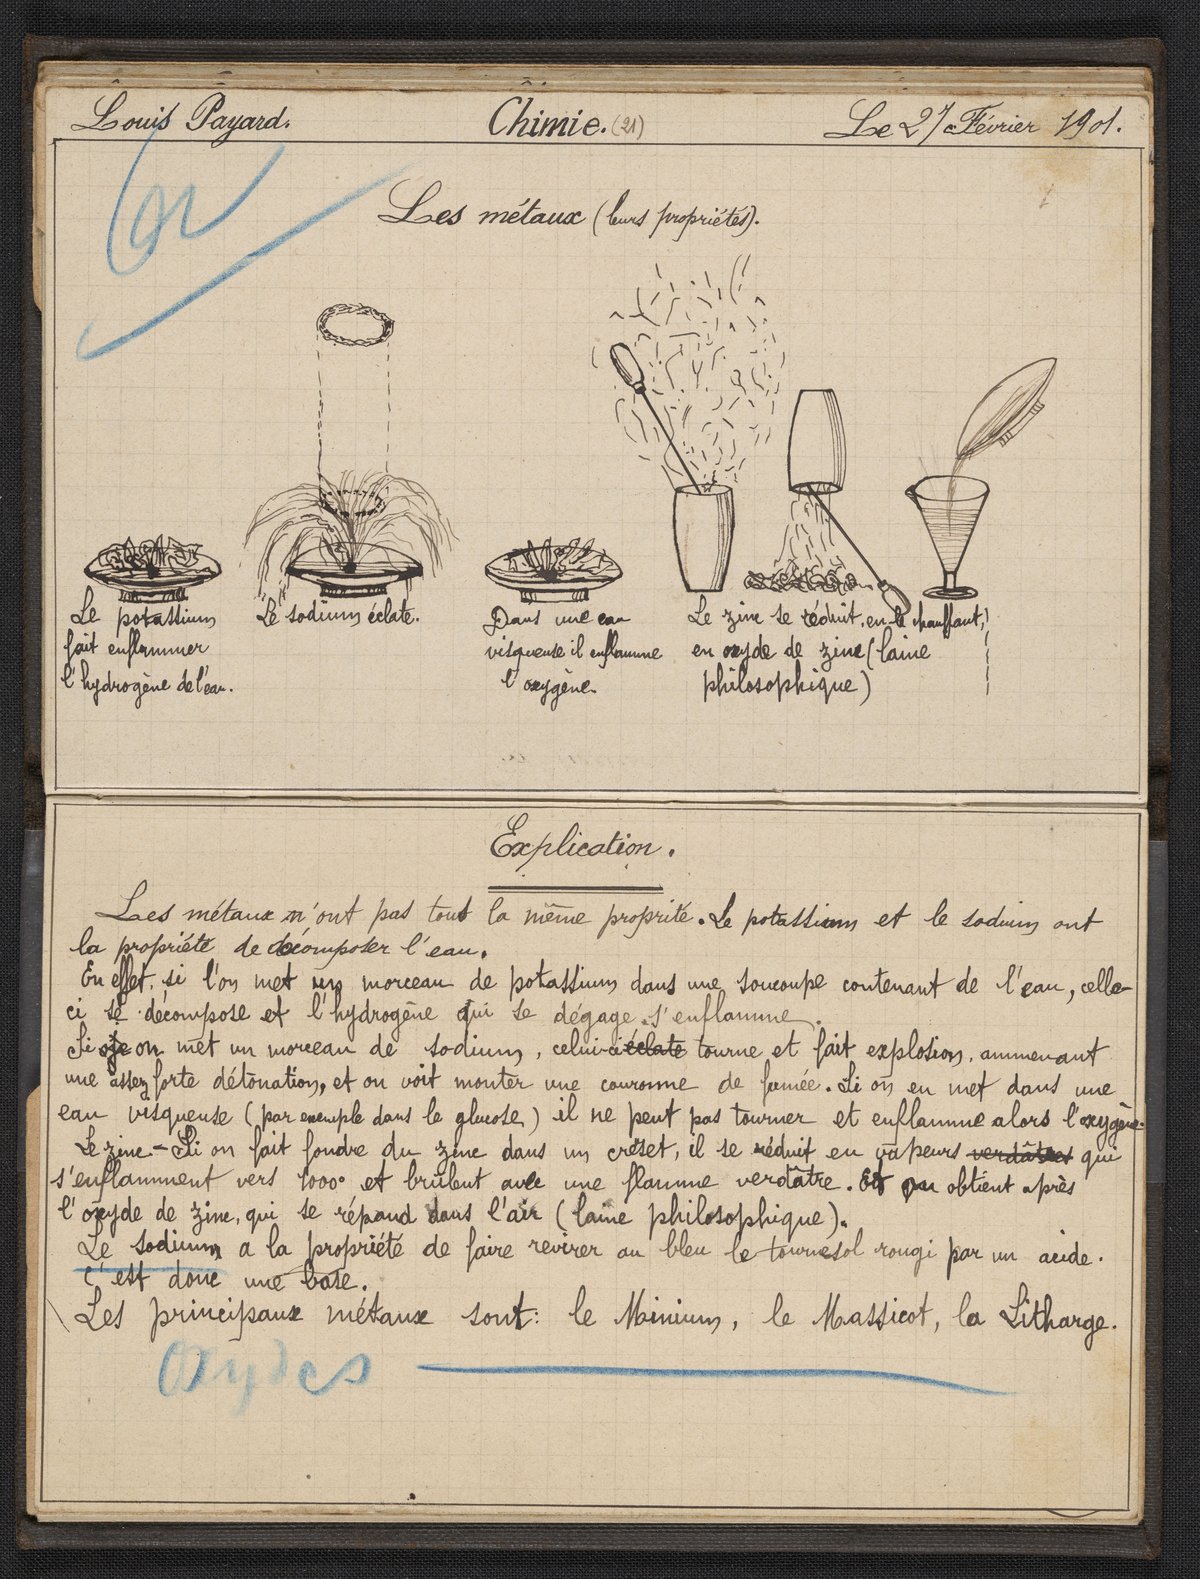 Louis Payard. Chimie. (21) Le 27 Février 1901.
Les métaux (leurs propriétés).
Le potassium
fait enflammer
l'hydrogène de l'eau.
Le sodium éclate.
Dans une eau
visqueuse il enflamme
l'oxygène.
Le zinc se réduit, en le chauffant,
en oxyde de zinc (laine
philosophique)
Explication.
Les métaux n'ont pas tout la même proprité. Le potassium et le sodium ont
la propriété de décomposer l'eau.
En effet, si l'on met un morceau de potassium dans une soucoupe contenant de l'eau, celle-
ci se décompose et l'hydrogène qui se dégage s'enflamme.
Si on met un morceau de sodium, celui-ci éclate tourne et fait explosion, ammenant
une assez forte détonation, et on voit monter une couronne de fumée. Si on en met dans une
eau visqueuse (par exemple dans le glucose) il ne peut pas tourner et enflamme alors l'oxygène.
Le zinc. - Si on fait fondre du zinc dans un creset, il se réduit en vapeurs verdâtres qui
s'enflamment vers 1000° et brûlent avec une flamme verdâtre. Et on obtient après
l'oxyde de zinc, qui se répand dans l'air (laine philosophique).
Le sodium a la propriété de faire revirer au bleu le tournesol rougi par un acide.
C'est donc une base.
Les principaux métaux sont: le Minium, le Massicot, la Litharge.
oxydes